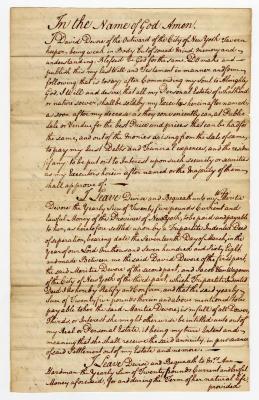 In the Name of God Amen.
I David Devore of the Outward of the City of New York Tavern
keeper, being weak in Body but of sound Mind, memory and
understanding Blessed be God for the same Do make and
publish this my last Will and Testament in manner and form
following that is to say after Commending my Soul to Almighty
God, I Will and desire, that all my Personal Estate of whatkind
or nature soever shall be sold by my Executors herein after named
as soon after my decease as they conveniently can at Public
Sale or Vendue for the best Price and prices that can be had for
the same, and out of the Monies arising from the Sale of same
to pay my Just Debts and Funeral expences, and the residue
if any to be put out to Interest upon such Security or securities
as my Executors herein after named or the Majority of them
shall approve of.
I Leave Devise and Bequeath unto my Wife
Devore the Yearly Sum of Twenty five pounds Current and
lawful Money of the Province of New York, to be paid and payable
to her, as heretofore settled upon by a Tripartite Indented Deed
of seperation, bearing date the seventeenth Day of March, in the
Year of our Lord One thousand seven hundred and sixty Eight
and made Between me the said David Devore of the first part
the said Devore of the second part, and Jacob
of the City of New York of the third part, which Tripartite Indented
Deed I do hereby Ratify and confirm and that the said yearly
Sum of Twenty five pounds herein and above mentioned to be
payable to her the said Devore is in full of all Dower,
Thirds, or Interest she might otherwise be intitled unto out of
my Real or Personal Estate, it being my true Intent and
meaning that she shall receive the said annuity in pursuance
of said Settlement out of my Estate and no more.
I Leave Devise and Bequeath to Mrs. Ann
Hardman the Yearly Sum of Twenty pounds Current and lawful
Money aforesaid, for and during the Term of her natural life
provided